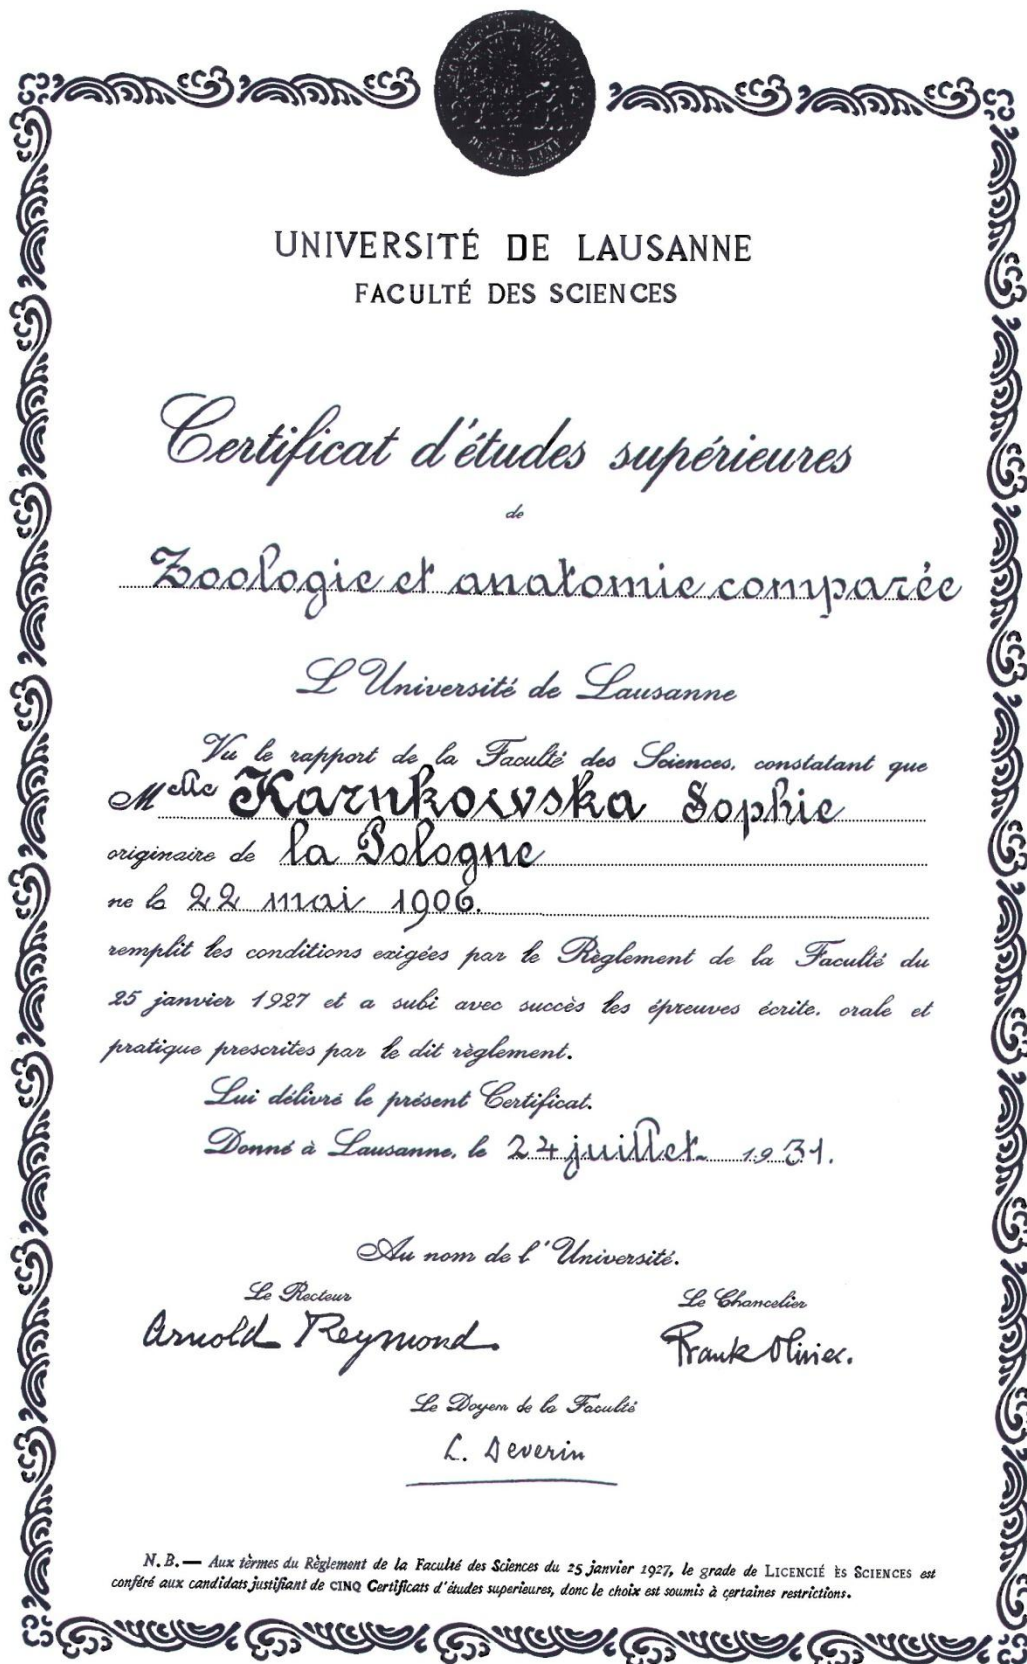 UNIVERSITÉ DE LAUSANNE
FACULTÉ DES SCIENCES
Certificat d'études supérieures
de
Zoologie et anatomie comparée
L'Université de Lausanne
Vu le rapport de la Faculté des Sciences, constatant que
Melle Karnkowska Sophie
originaire de la Pologne
ne le 22 mai 1906.
remplit les conditions exigées par le Règlement de la Faculté du
25 janvier 1927 et a subi avec succès les épreuves écrite, orale et
pratique prescrites par le dit règlement.
Lui délivre le présent Certificat.
Donné à Lausanne, le 24 juillet 1931.
Au nom de l'Université.
Le Recteur Le Chancelier
Arnold Reymond. Frank Olivier.
Le Doyen de la Faculté
L. Déverin
N. B. — Aux tèrmes du Règlement de la Faculté des Sciences du 25 janvier 1927, le grade de LICENCIÉ ÈS SCIENCES est
conféré aux candidats justifiant de CINQ Certificats d'études superieures, donc le choix est soumis à certaines restrictions.